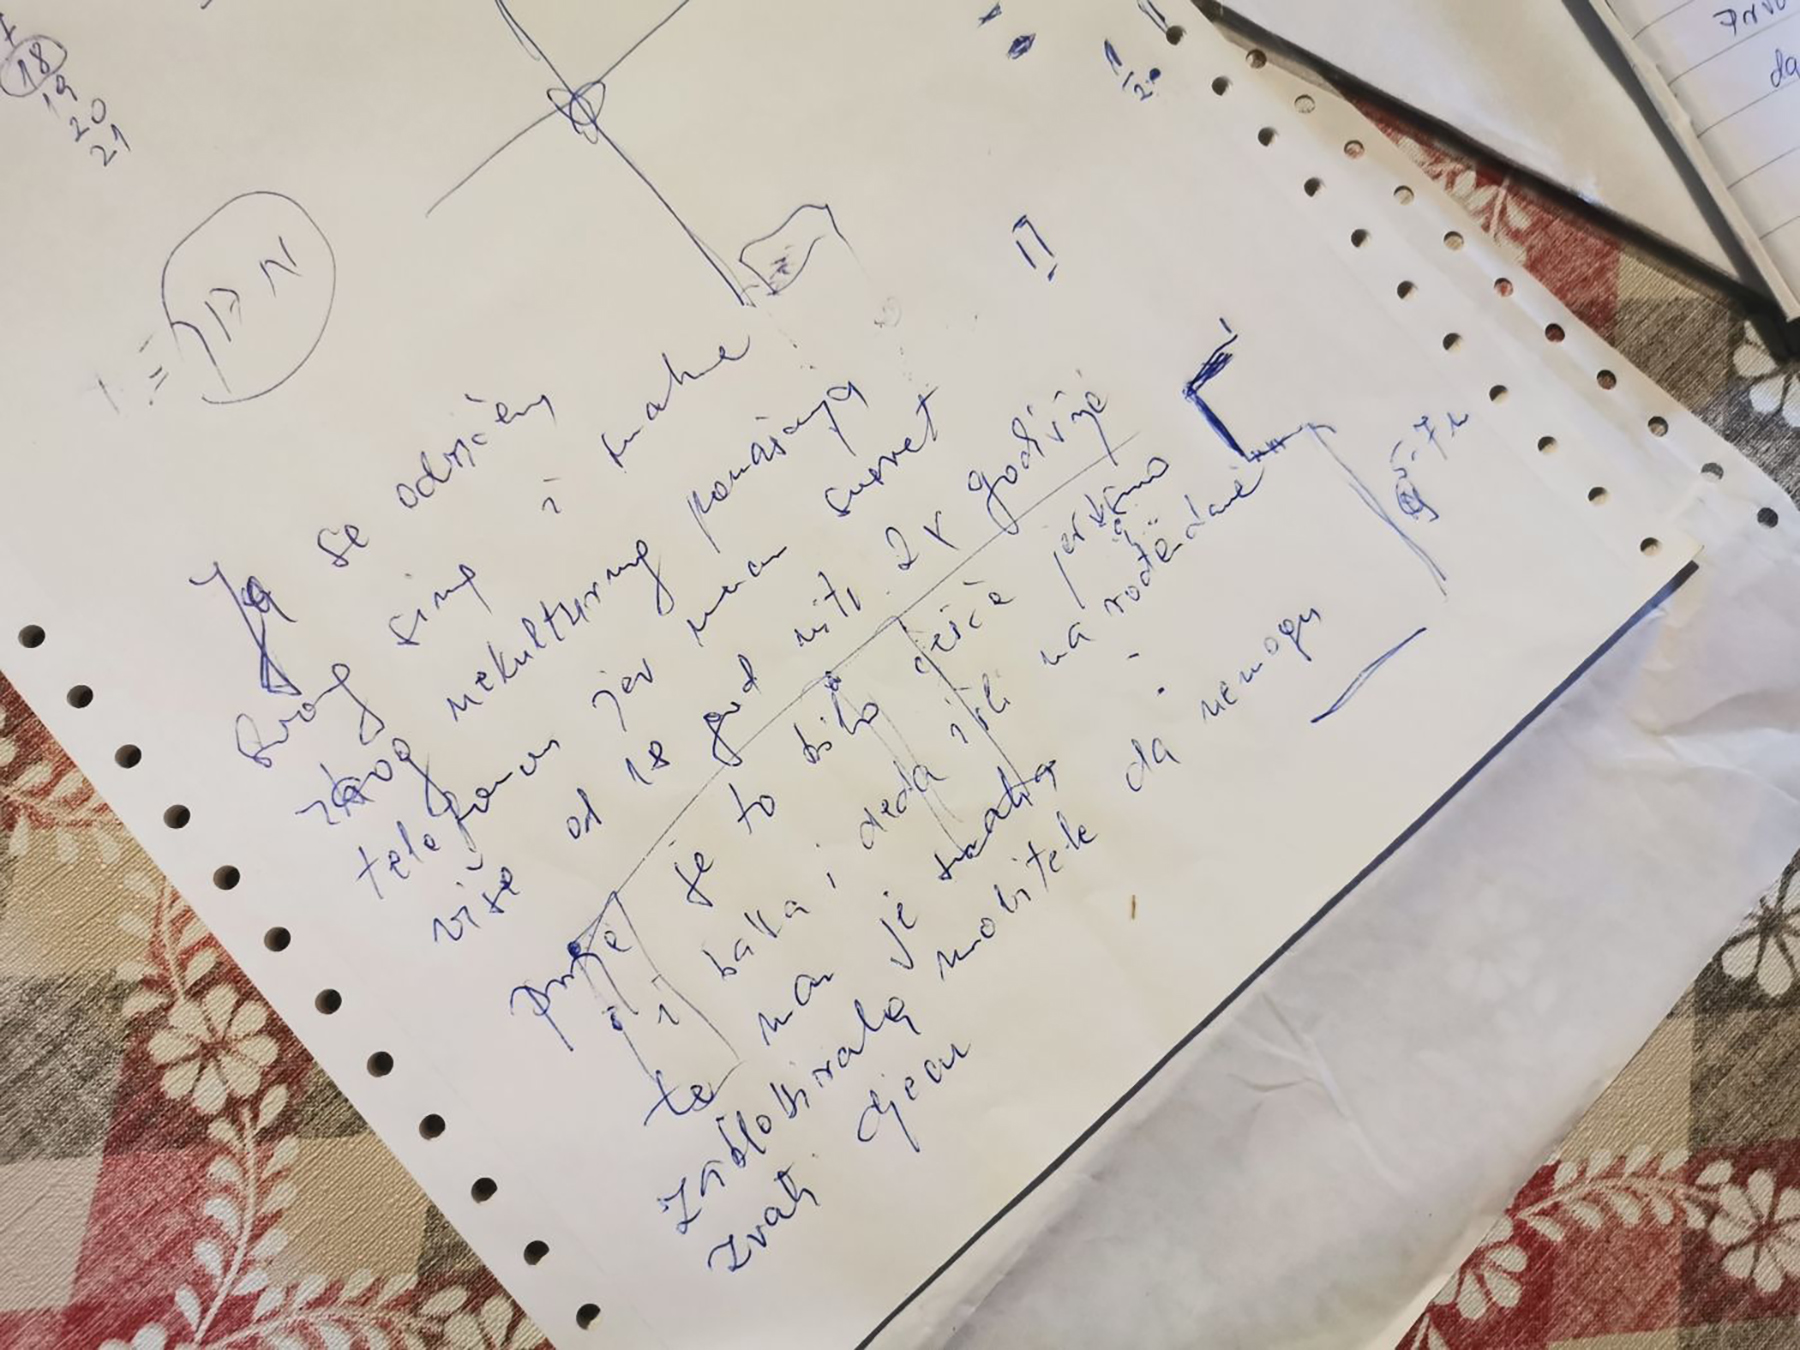 18
19
20
21
17 N
Ja se odričem
svog sina i snahe
zbog nekulturnog ponašanja
telefonom jer nemam susret
više od 18 god niti 2x godišnje
prije je to bilo češće
i baka i deda išli na rođendane
te nam je snaha
zablokirala mobitek da nemogu
zvati djecu
5-7
da